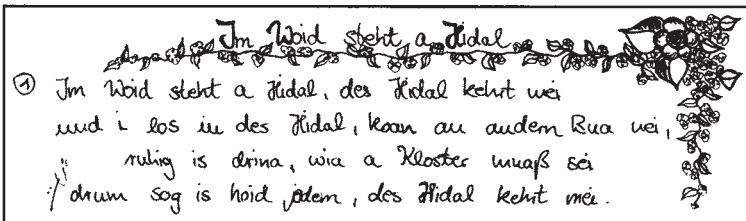 Im Woid steht a Hidal
① Im Woid steht a Hidal, des Hidal kehrt mei
und i los in des Hidal, koan an andern Bua nei,
ruhig is drina, wia a Kloster muaß sei
drum sog is hoid jedem, des Hidal kehrt mei.